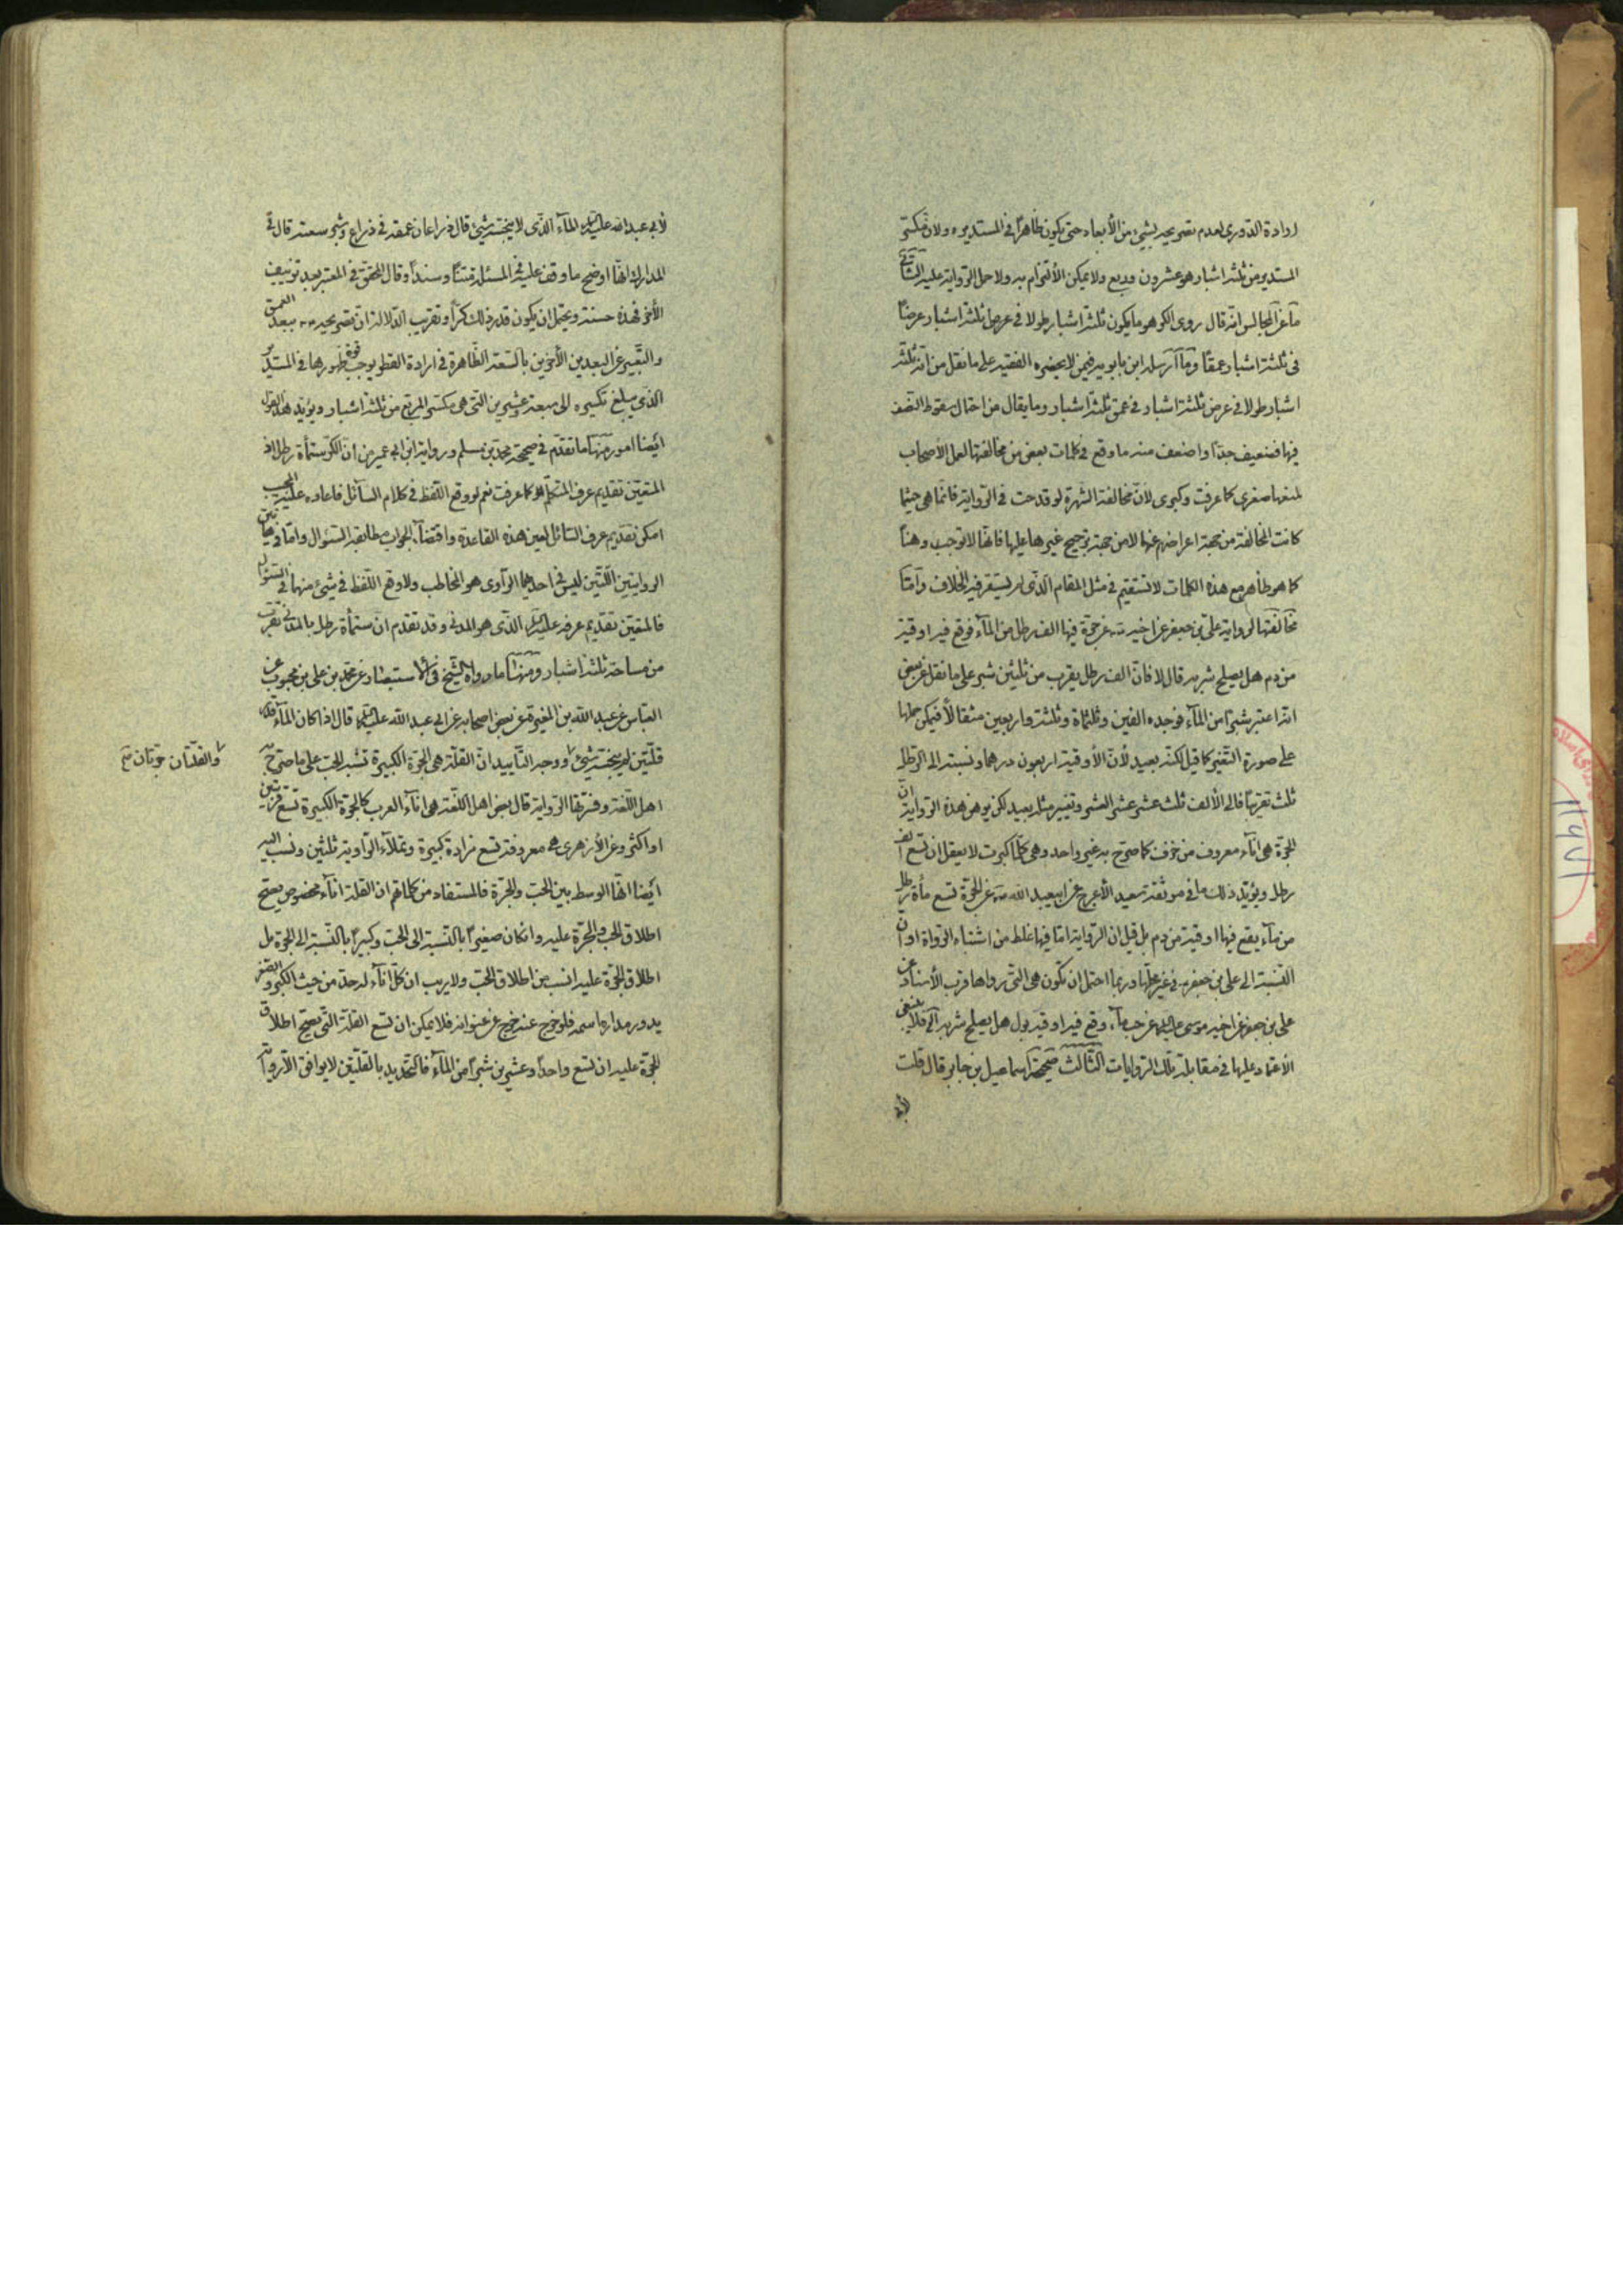 ارادة الدّوري لعدم تصريحه بشيء من الأبعاد حتى يكون ظاهرًا في المستدير ولان مكسّر
المستدير من ثلثة اشبار هو عشرون وربع ولا يمكن الألتزام به ولا حمل الرواية عليه الثاني
ما عن المجالس انه قال روى الكر هو ما يكون ثلثة اشبار طولا في عرض ثلثة اشبار عرضًا
في ثلثة اشبار عمقًا وما ارسله ابن بابويه فيمن لا يحضره الفقيه على ما نقل من انه ثلثة
اشبار طولا في عرض ثلثة اشبار في عمق ثلثة اشبار وما يقال من احتمال سقوط النصف
فيها فضعيف جدّا واضعف منه ما وقع في كلمات بعض من مخالفتها لعمل الأصحاب
لمنعها صغرى كما عرفت وكبرى لانّ مخالفة الشهرة لو قدحت في الرواية فانّما هي حيثما
كانت المخالفة من جهة اعراضهم عنها لا من جهة ترجيح غيرها عليها فانها لا توجب وهنًا
كما هو ظاهر مع هذه الكلمات لا تستقيم في مثل المقام الّذي لم يستقر فيه الخلاف وامّا
مخالفتها لرواية علي بن جعفر عن اخيه عن جرّة فيها الف رطل من المآء فوقع فيه اوقية
من دم هل يصلح شربه قال لا فانّ الف رطل يقرب من ثلثين شبر على ما نقل عن بعض
انه اعتبر شبرًا من المآء فوجده الفين وثلثمأة وثلثة واربعين مثقالًا فيمكن حملها
على صورة التغير كما قيل لكنه بعيد لأنّ الأوقية اربعون درهما ونسبته الى الرطل
ثلث تقريبًا فالى الألف ثلث عشر عشر العشر وتغيير مثله بعيد لكن يوهن هذه الرواية انّ
الجرة هي انآء معروف من خزف كما صرّح به غير واحد وهي كلما كبرت لا يعقل ان تسع الف
رطل ويؤيد ذلك ما في موثقة سعيد الأعرج عن ابيعبد الله عن الجرّة تسع مأة رطل
من مآء يقع فيها اوقية من دم بل قيل ان الرواية امّا فيها غلط من اشتباه الرواة او ان
النسبة الى علي بن جعفر في غير محلها وربما احتمل ان تكون هي التي رواها قرب الأسناد عن
علي بن جعفر عن اخيه موسى عن حب مآء وقع فيه اوقية بول هل يصلح شربه الخ فلا ينبغي
الأعتماد عليها في مقابلة تلك الروايات الثالث صحيحة اسماعيل بن جابر قال قلت
لأبي عبد الله عليه السلام المآء الّذي لا ينجسه شيئ قال ذراعان عمقه في ذراع وشبر سعته قال في
المدارك انها اوضح ما وقفت عليه في المسئلة متنًا وسندًا وقال المحقق في المعتبر بعد تزييف
الأخر فهذه حسنة ويحتمل ان يكون قدر ذلك كرًّا وتقريب الدلالة ان تصريحه ببعد العمق
والتعبير عن البعدين الأخرين بالسعة الظاهرة في ارادة القطر يوجب قوة ظهورها في المستدير
الّذي يبلغ تكسيره الى سبعة وعشرين التي هي مكسّر المربع من ثلثة اشبار ويؤيد هذا القول
ايضا امور منها ما تقدّم في صحيحة محمد بن مسلم ورواية ابن ابي عمير من انّ الكر ستمأة رطل اذ
المتعين تقديم عرف المتكلم كما عرفت نعم لو وقع اللفظ في كلام السآئل فاعاده المجيب
امكن تقديم عرف السّائل لعين هذه القاعدة واقتضآء الجواب مطابقة السئوال وامّا في هاتين
الروايتين اللّتين ليس في احديهما الرآوي هو المخاطب ولا وقع اللفظ في شيئ منهما في السئوال
فالمتعين تقديم عرفه عليه السلام الّذي هو المدني وقد تقدم ان ستمأة رطل بالمدني تقرب
من مساحة ثلثة اشبار ومنها ما رواه الشيخ في الاستبصار عن محمّد بن علي بن محبوب عن
العباس عن عبد الله بن المغيرة عن بعض اصحابه عن ابي عبد الله عليه السلام قال اذا كان المآء قدر
قلّتين لم ينجسه شيئ ووجه التأييد انّ القلّة هي الجرّة الكبيرة تشبه الحب على ما صرّح به
والقلّتان جرّتان صح
اهل اللّغة وفسّرتها الرّواية قال بعض اهل اللّغة هي انآء العرب كالجرّة الكبيرة تسع قربتين
او اكثر وعن الأزهري هي معروفة تسع مزادة كبيرة وتملآء الرّاوية ثلثين ونسب اليه
ايضا انّها الوسط بين الحب والجرّة فالمستفاد من كلماتهم ان القلة انآء مخصوص يصح
اطلاق الحب والجرّة عليه وانكان صغيرًا بالنسبة الى الحب وكبيرًا بالنّسبة الى الجرة بل
اطلاق الجرّة عليه انسب من اطلاق الحب ولا يريب ان كلّ انآء له حدّ من حيث الكبر والصغر
يدور مدارها اسمه فلو خرج عنه خرج عن عنوانه فلا يمكن ان تسع القلة التي يصحّ اطلاق
الجرّة عليه ان تسع واحدًا وعشرين شبرًا من المآء فالتحديد بالقلّتين لا يوافق الا رواية